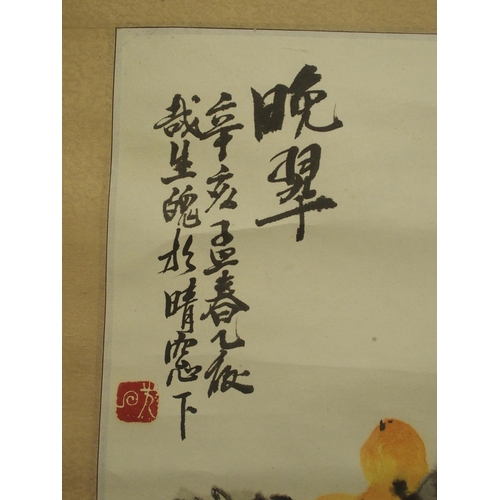 晚翠
辛亥孟春乙夜
哉生魄於晴窓下